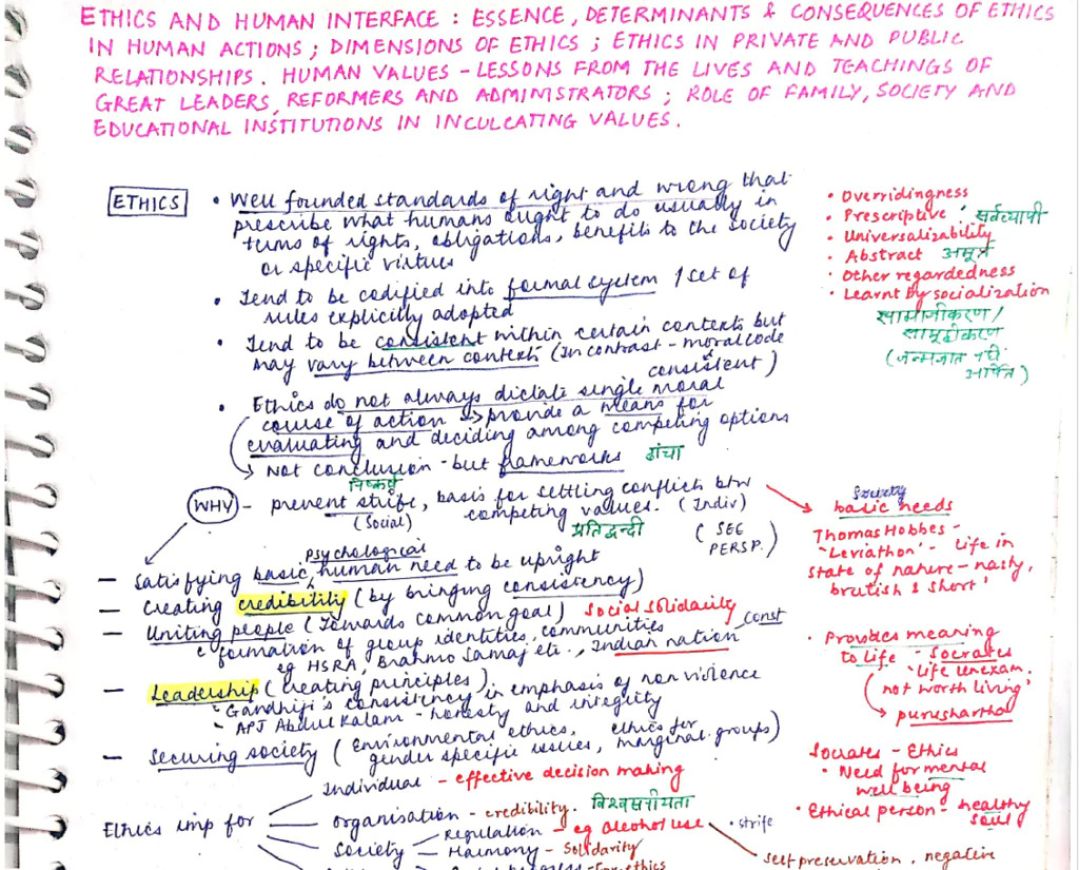 ETHICS AND HUMAN INTERFACE : ESSENCE, DETERMINANTS & CONSEQUENCES OF ETHICS
IN HUMAN ACTIONS ; DIMENSIONS OF ETHICS ; ETHICS IN PRIVATE AND PUBLIC
RELATIONSHIPS. HUMAN VALUES - LESSONS FROM THE LIVES AND TEACHINGS OF
GREAT LEADERS, REFORMERS AND ADMINISTRATORS ; ROLE OF FAMILY, SOCIETY AND
EDUCATIONAL INSTITUTIONS IN INCULCATING VALUES.
ETHICS
• Well founded standards of right and wrong that
prescribe what humans ought to do usually in
terms of rights, obligations, benefits to the society
or specific virtues
• Tend to be codified into formal system / set of
rules explicitly adopted
• Tend to be consistent within certain contexts but
may vary between contexts (In contrast - moral code
consistent)
• Ethics do not always dictate single moral
course of action -> provide a means for
evaluating and deciding among competing options
Not conclusion - but frameworks ढांचा
निष्कर्ष
• Overridingness
• Prescriptive सर्वव्यापी
• Universalizability
• Abstract अमूर्त
• Other regardedness
• Learnt by socialization
सामाजीकरण /
सामूहीकरण
(जन्मजात नहीं
WHY - prevent strife, basis for settling conflicts btw
(Social) competing values. (Indiv)
प्रतिद्वन्दी (SEC
PERSP.)
psychological
- Satisfying basic human need to be upright
- Creating credibility (by bringing consistency)
- Uniting people (Towards common goal) Social solidarity
formation of group identities, communities const
eg HSRA, Brahmo Samaj etc., Indian nation
- Leadership (creating principles)
- Gandhiji's consistency in emphasis of non violence
- APJ Abdul Kalam - honesty and integrity
- Securing society (Environmental ethics, ethics for
gender specific issues, marginal. groups)
Society
basic needs
Thomas Hobbes -
'Leviathon' - Life in
state of nature - nasty,
brutish & short'
• Provides meaning
to Life - Socrates
'Life unexam.
not worth living'
purushartha
Socrates - Ethics
• Need for mental
well being
• Ethical person - healthy
soul
Ethics imp for
Individual - effective decision making
Organisation - credibility. विश्वसनीयता
Society - Regulation - eg alcohol use
- Harmony - Solidarity
• strife
self preservation, negative